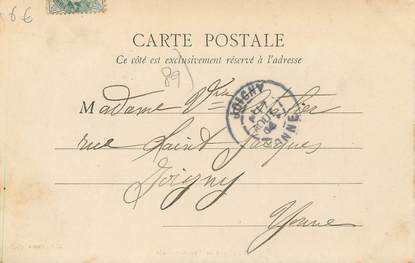 6 €
CARTE POSTALE
Ce côté est exclusivement réservé à l'adresse
89)
Madame Vve
rue Saint Jacques
Joigny
Yonne
JOIGNY
YONNE